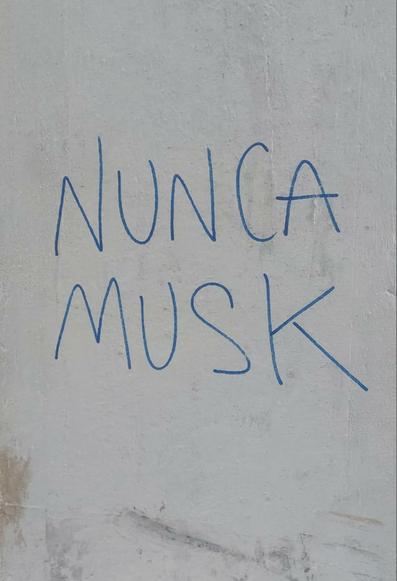 NUNCA
MUSK